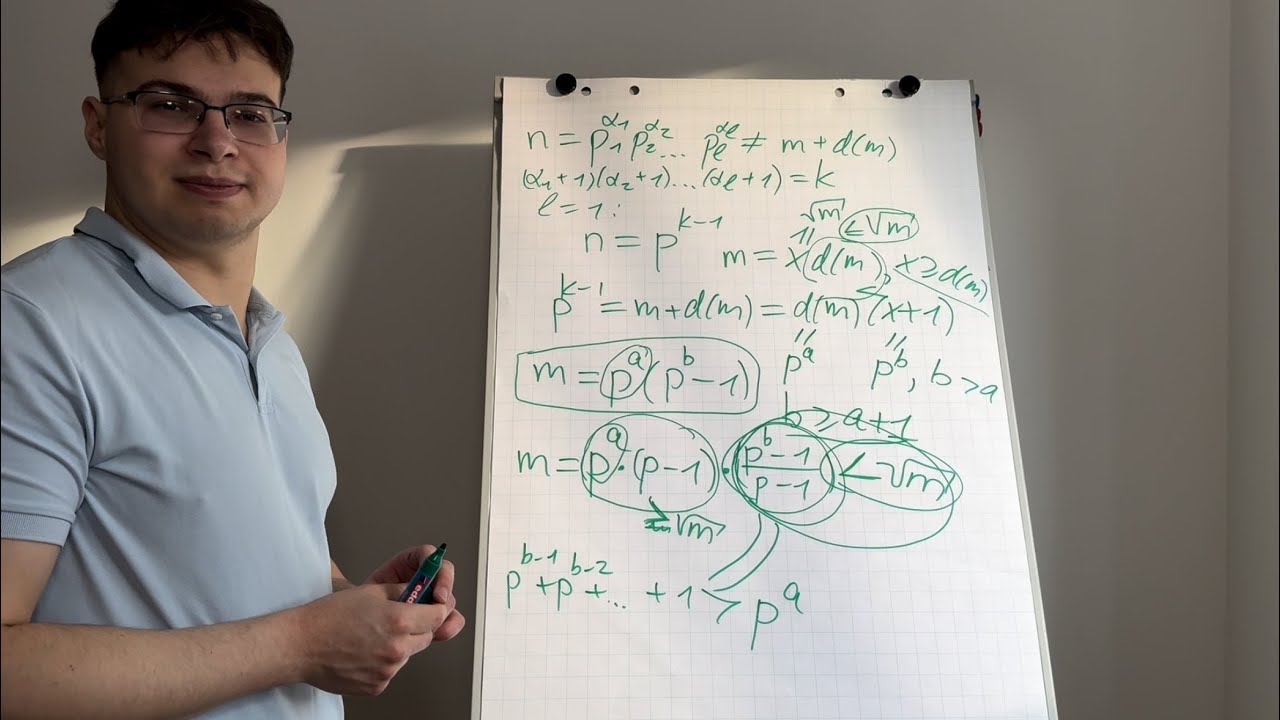 n = p₁^α₁ p₂^α₂ ... pℓ^αℓ ≠ m + d(m)
(α₁+1)(α₂+1)...(αℓ+1) = k
ℓ = 1 :
n = p^(k-1)
√m
<√m
m = x d(m), x ≥ d(m)
p^(k-1) = m + d(m) = d(m)(x+1)
m = p^a (p^b - 1)
p^a
p^b, b > a
b ≥ a+1
m = p^a · (p-1) · (p^b - 1)/(p - 1) < √m
√m
p^(b-1) + p^(b-2) + ... + 1 > p^a
edd